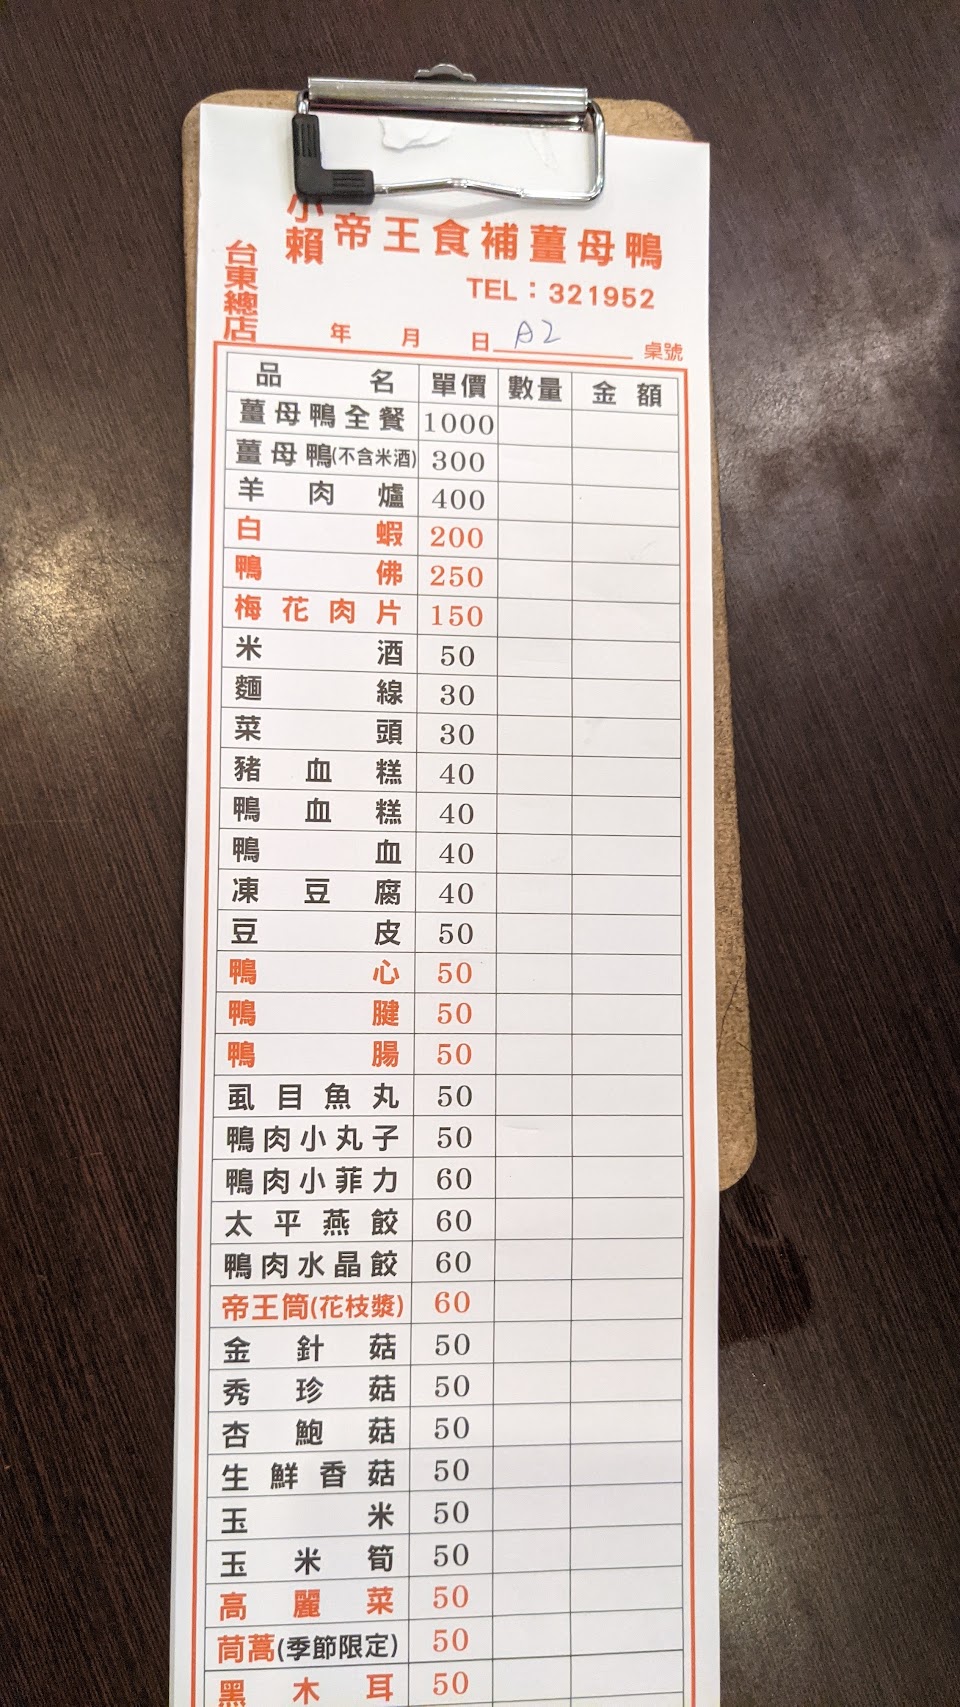 小賴 帝王食補薑母鴨
台東總店
TEL：321952
年 月 日 A2 桌號
品名 單價 數量 金額
薑母鴨全餐 1000
薑母鴨(不含米酒) 300
羊肉爐 400
白蝦 200
鴨佛 250
梅花肉片 150
米酒 50
麵線 30
菜頭 30
豬血糕 40
鴨血糕 40
鴨血 40
凍豆腐 40
豆皮 50
鴨心 50
鴨腱 50
鴨腸 50
虱目魚丸 50
鴨肉小丸子 50
鴨肉小菲力 60
太平燕餃 60
鴨肉水晶餃 60
帝王筒(花枝漿) 60
金針菇 50
秀珍菇 50
杏鮑菇 50
生鮮香菇 50
玉米 50
玉米筍 50
高麗菜 50
茼蒿(季節限定) 50
黑木耳 50